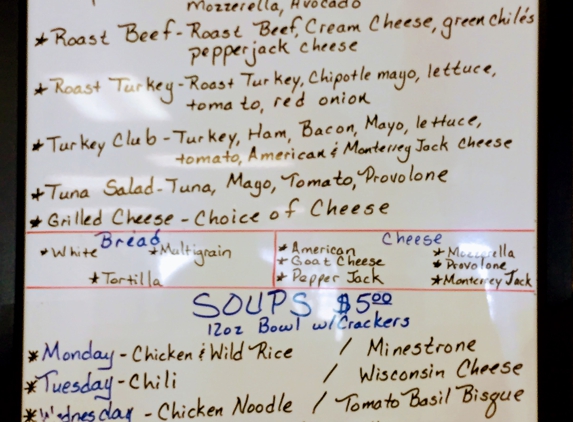 Mozzerella, Avocado
* Roast Beef - Roast Beef, Cream Cheese, green chile's
pepperjack cheese
* Roast Turkey - Roast Turkey, Chipotle mayo, lettuce,
tomato, red onion
* Turkey Club - Turkey, Ham, Bacon, Mayo, lettuce,
tomato, American & Monterrey Jack cheese
* Tuna Salad - Tuna, Mayo, Tomato, Provolone
* Grilled Cheese - Choice of Cheese
Bread
* White * Multigrain
* Tortilla
Cheese
* American * Mozzerella
* Goat Cheese * Provolone
* Pepper Jack * Monterrey Jack
SOUPS $5.00
12oz Bowl w/Crackers
* Monday - Chicken & Wild Rice / Minestrone
* Tuesday - Chili / Wisconsin Cheese
* Wednesday - Chicken Noodle / Tomato Basil Bisque